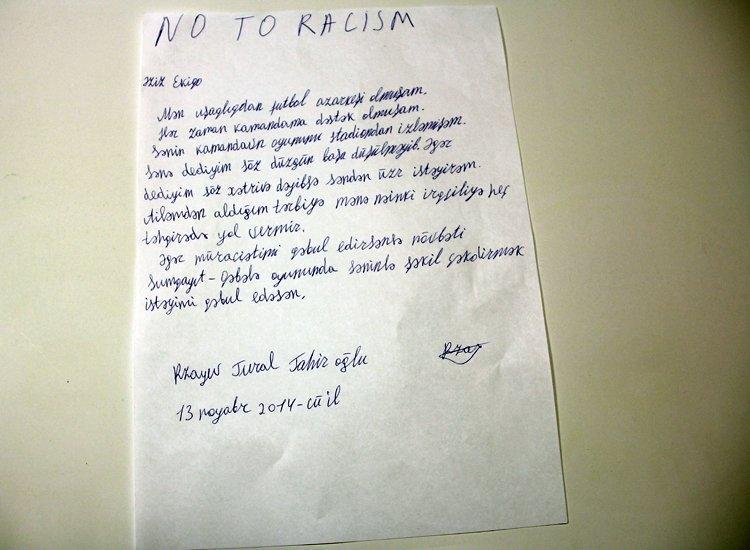 NO TO RACISM
Əziz Ekigo
Mən uşaqlıqdan futbol azarkeşi olmuşam.
Hər zaman kamandama dəstək olmuşam.
Sənin kamandavın oyununu stadiondan izləmişəm.
Sənə dediyim söz düzgün başa düşülməyib. Əgər
dediyim söz xətrivə dəyibsə səndən üzr istəyirəm.
Ailəmdən aldığım tərbiyə mənə nəinki irqçiliyə heç
təhqirədə yol vermir.
Əgər müraciətimi qəbul edirsənsə növbəti
Sumqayıt - Qəbələ oyununda səninlə şəkil çəkdirmək
istəyimi qəbul edəsən.
Rzayev Tural Tahir oğlu
13 noyabr 2014-cü il